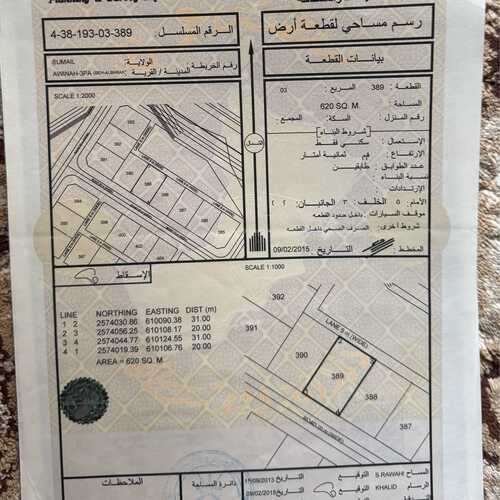 رسم مساحي لقطعة أرض
الرقم المسلسل 4-38-193-03-389
بيانات القطعة
الولاية: SUMAIL
رقم الخريطة المدينة / القرية:
القطعة: 389 المربع: 03
المساحة: 620 SQ. M.
رقم المنزل: السكة: المجمع:
شروط البناء
الإستعمال: سكني فقط
الإرتفاع: ثمانية أمتار
عدد الطوابق: طابقين
نسبة البناء:
الإرتدادات:
الأمام: ٥ الخلف: ٣ الجانبان:
موقف السيارات: داخل حدود القطعه
شروط أخرى: الصرف الصحي داخل القطعه
المخطط التاريخ 09/02/2015
SCALE 1:2000
الشمال
الإسقاط
SCALE 1:1000
LINE NORTHING EASTING DIST (m)
1 2 2574030.86 610090.38 31.00
2 3 2574056.25 610108.17 20.00
3 4 2574044.77 610124.55 31.00
4 1 2574019.39 610106.76 20.00
AREA = 620 SQ. M.
392
391
LANE 9 m (WIDE)
390
389
388
387
الملاحظات
دائرة المساحة
المساح S.RAWAHI التوقيع التاريخ 15/09/2013
الرسام KHALID التوقيع التاريخ 09/02/2015